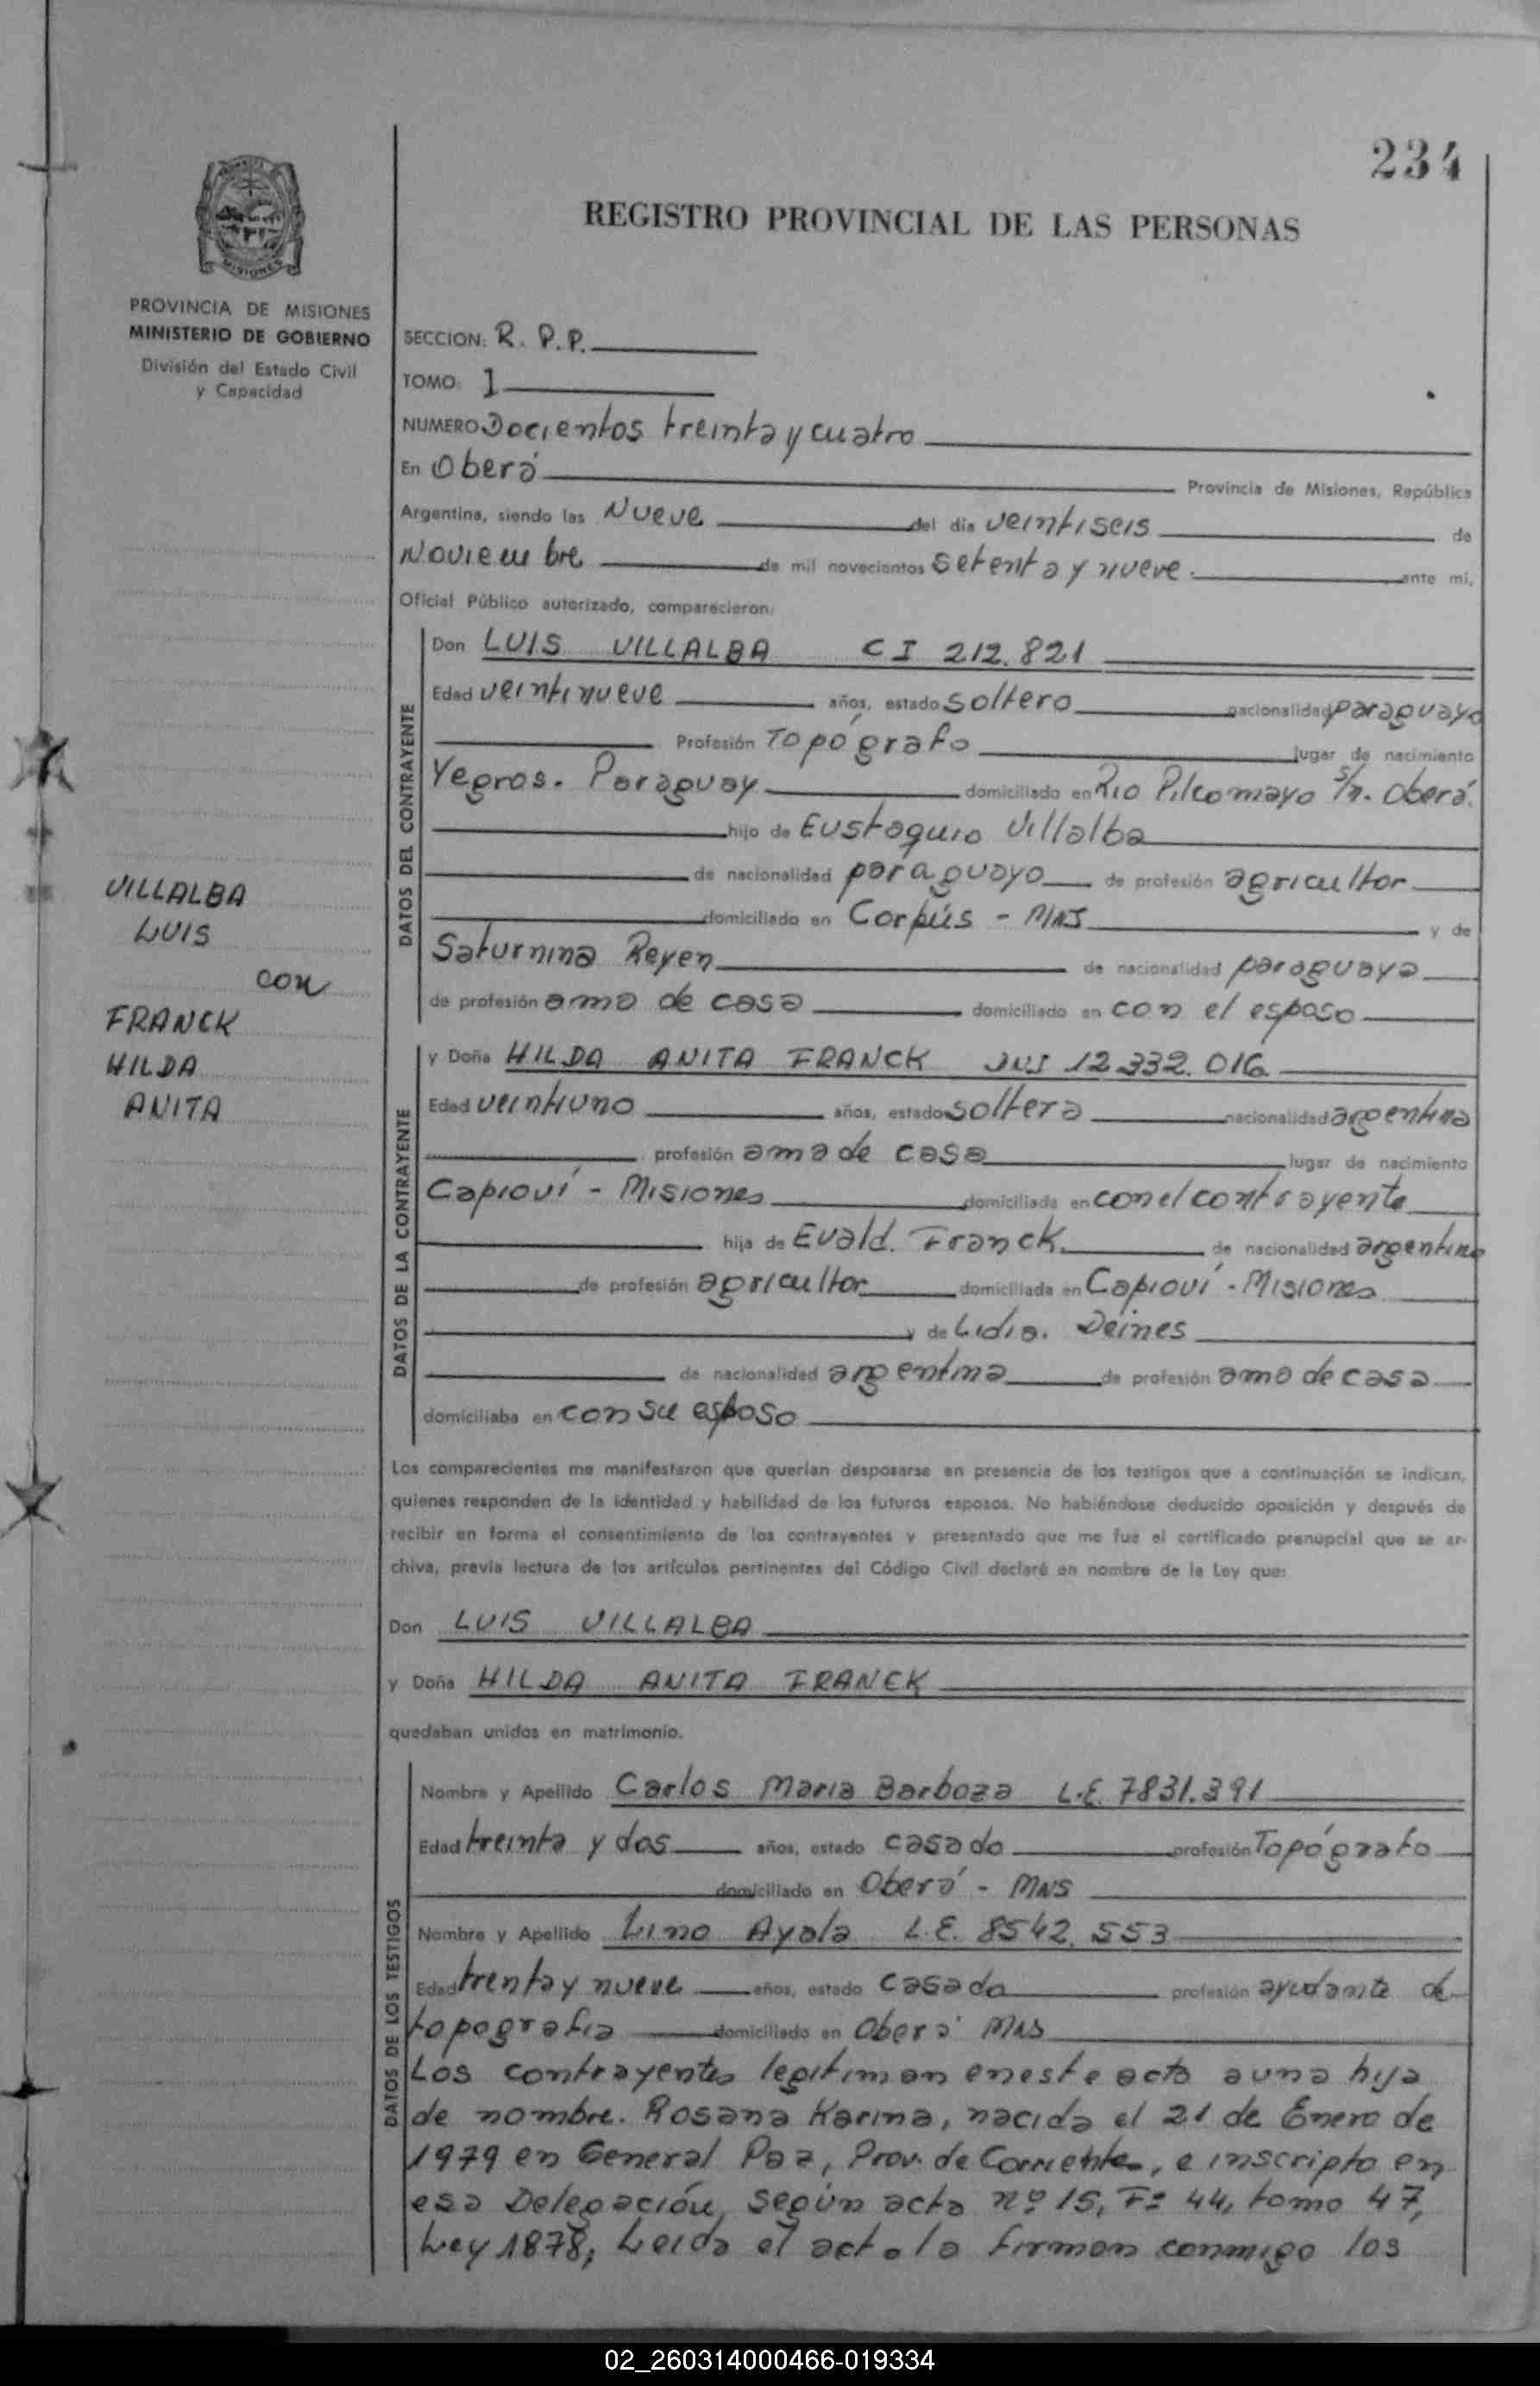 234
REGISTRO PROVINCIAL DE LAS PERSONAS
MISIONES
PROVINCIA DE MISIONES
MINISTERIO DE GOBIERNO
División del Estado Civil
y Capacidad
SECCION: R. P.P.
TOMO: 1
NUMERO Docientos treinta y cuatro
En Oberá Provincia de Misiones, República
Argentina, siendo las Nueve del día veintiseis de
Noviembre de mil novecientos setenta y nueve. ante mi,
Oficial Público autorizado, comparecieron:
DATOS DEL CONTRAYENTE
Don LUIS VILLALBA CI 212.821
Edad veintinueve años, estado soltero nacionalidad paraguayo
Profesión Topógrafo lugar de nacimiento
Yegros. Paraguay domiciliado en Rio Pilcomayo s/n. Oberá.
hijo de Eustaquio Villalba
de nacionalidad paraguayo de profesión agricultor
domiciliado en Corpús - MNS y de
Saturnina Reyen de nacionalidad paraguaya
de profesión ama de casa domiciliado en con el esposo
VILLALBA
LUIS
con
FRANCK
HILDA
ANITA
DATOS DE LA CONTRAYENTE
y Doña HILDA ANITA FRANCK DNI 12.332.016
Edad veintiuno años, estado soltera nacionalidad argentina
profesión ama de casa lugar de nacimiento
Capioví - Misiones domiciliada en con el contrayente
hija de Evald. Franck. de nacionalidad argentino
de profesión agricultor domiciliado en Capioví - Misiones
y de Lidia. Deines
de nacionalidad argentina de profesión ama de casa
domiciliaba en con su esposo
Los comparecientes me manifestaron que querían desposarse en presencia de los testigos que a continuación se indican,
quienes responden de la identidad y habilidad de los futuros esposos. No habiéndose deducido oposición y después de
recibir en forma el consentimiento de los contrayentes y presentado que me fue el certificado prenupcial que se ar-
chiva, previa lectura de los artículos pertinentes del Código Civil declaré en nombre de la Ley que:
Don LUIS VILLALBA
y Doña HILDA ANITA FRANCK
quedaban unidos en matrimonio.
DATOS DE LOS TESTIGOS
Nombre y Apellido Carlos Maria Barboza L.E. 7831.391
Edad treinta y dos años, estado casado profesión Topógrafo
domiciliado en Oberá - MNS
Nombre y Apellido Lino Ayala L.E. 8542.553
Edad trenta y nueve años, estado casado profesión ayudante de
topografia domiciliado en Oberá MNS
Los contrayentes legitiman en este acto a una hija
de nombre. Rosana Karina, nacida el 21 de Enero de
1979 en General Paz, Prov. de Corrientes, e inscripta en
esa Delegación, según acta nº 15, Fº 44, tomo 47,
Ley 1878, Leida el acta la firman conmigo los
02_260314000466-019334